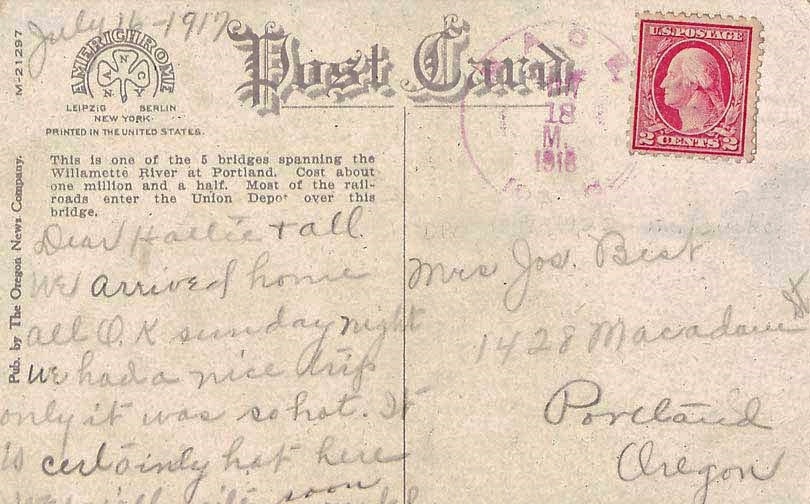 July 16-1917
M-21297
AMERICHROME
N A N C Y
LEIPZIG BERLIN
NEW YORK
PRINTED IN THE UNITED STATES.
Post Card
18
M.
1918
U.S. POSTAGE
2 CENTS 2
Pub. by The Oregon News Company.
This is one of the 5 bridges spanning the
Willamette River at Portland. Cost about
one million and a half. Most of the rail-
roads enter the Union Depot over this
bridge.
Dear Hallie & all.
We arrived home
all O.K sunday night
we had a nice trip
only it was so hot. It
is certainly hot here
soon
Mrs Jos. Best
1428 Macadam St
Portland
Oregon